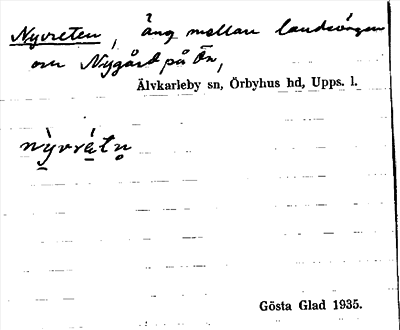 Nyvreten, äng mellan landsvägen
och Nygård på Ön,
Älvkarleby sn, Örbyhus hd, Upps. l.
nỳvrétn̥
Gösta Glad 1935.